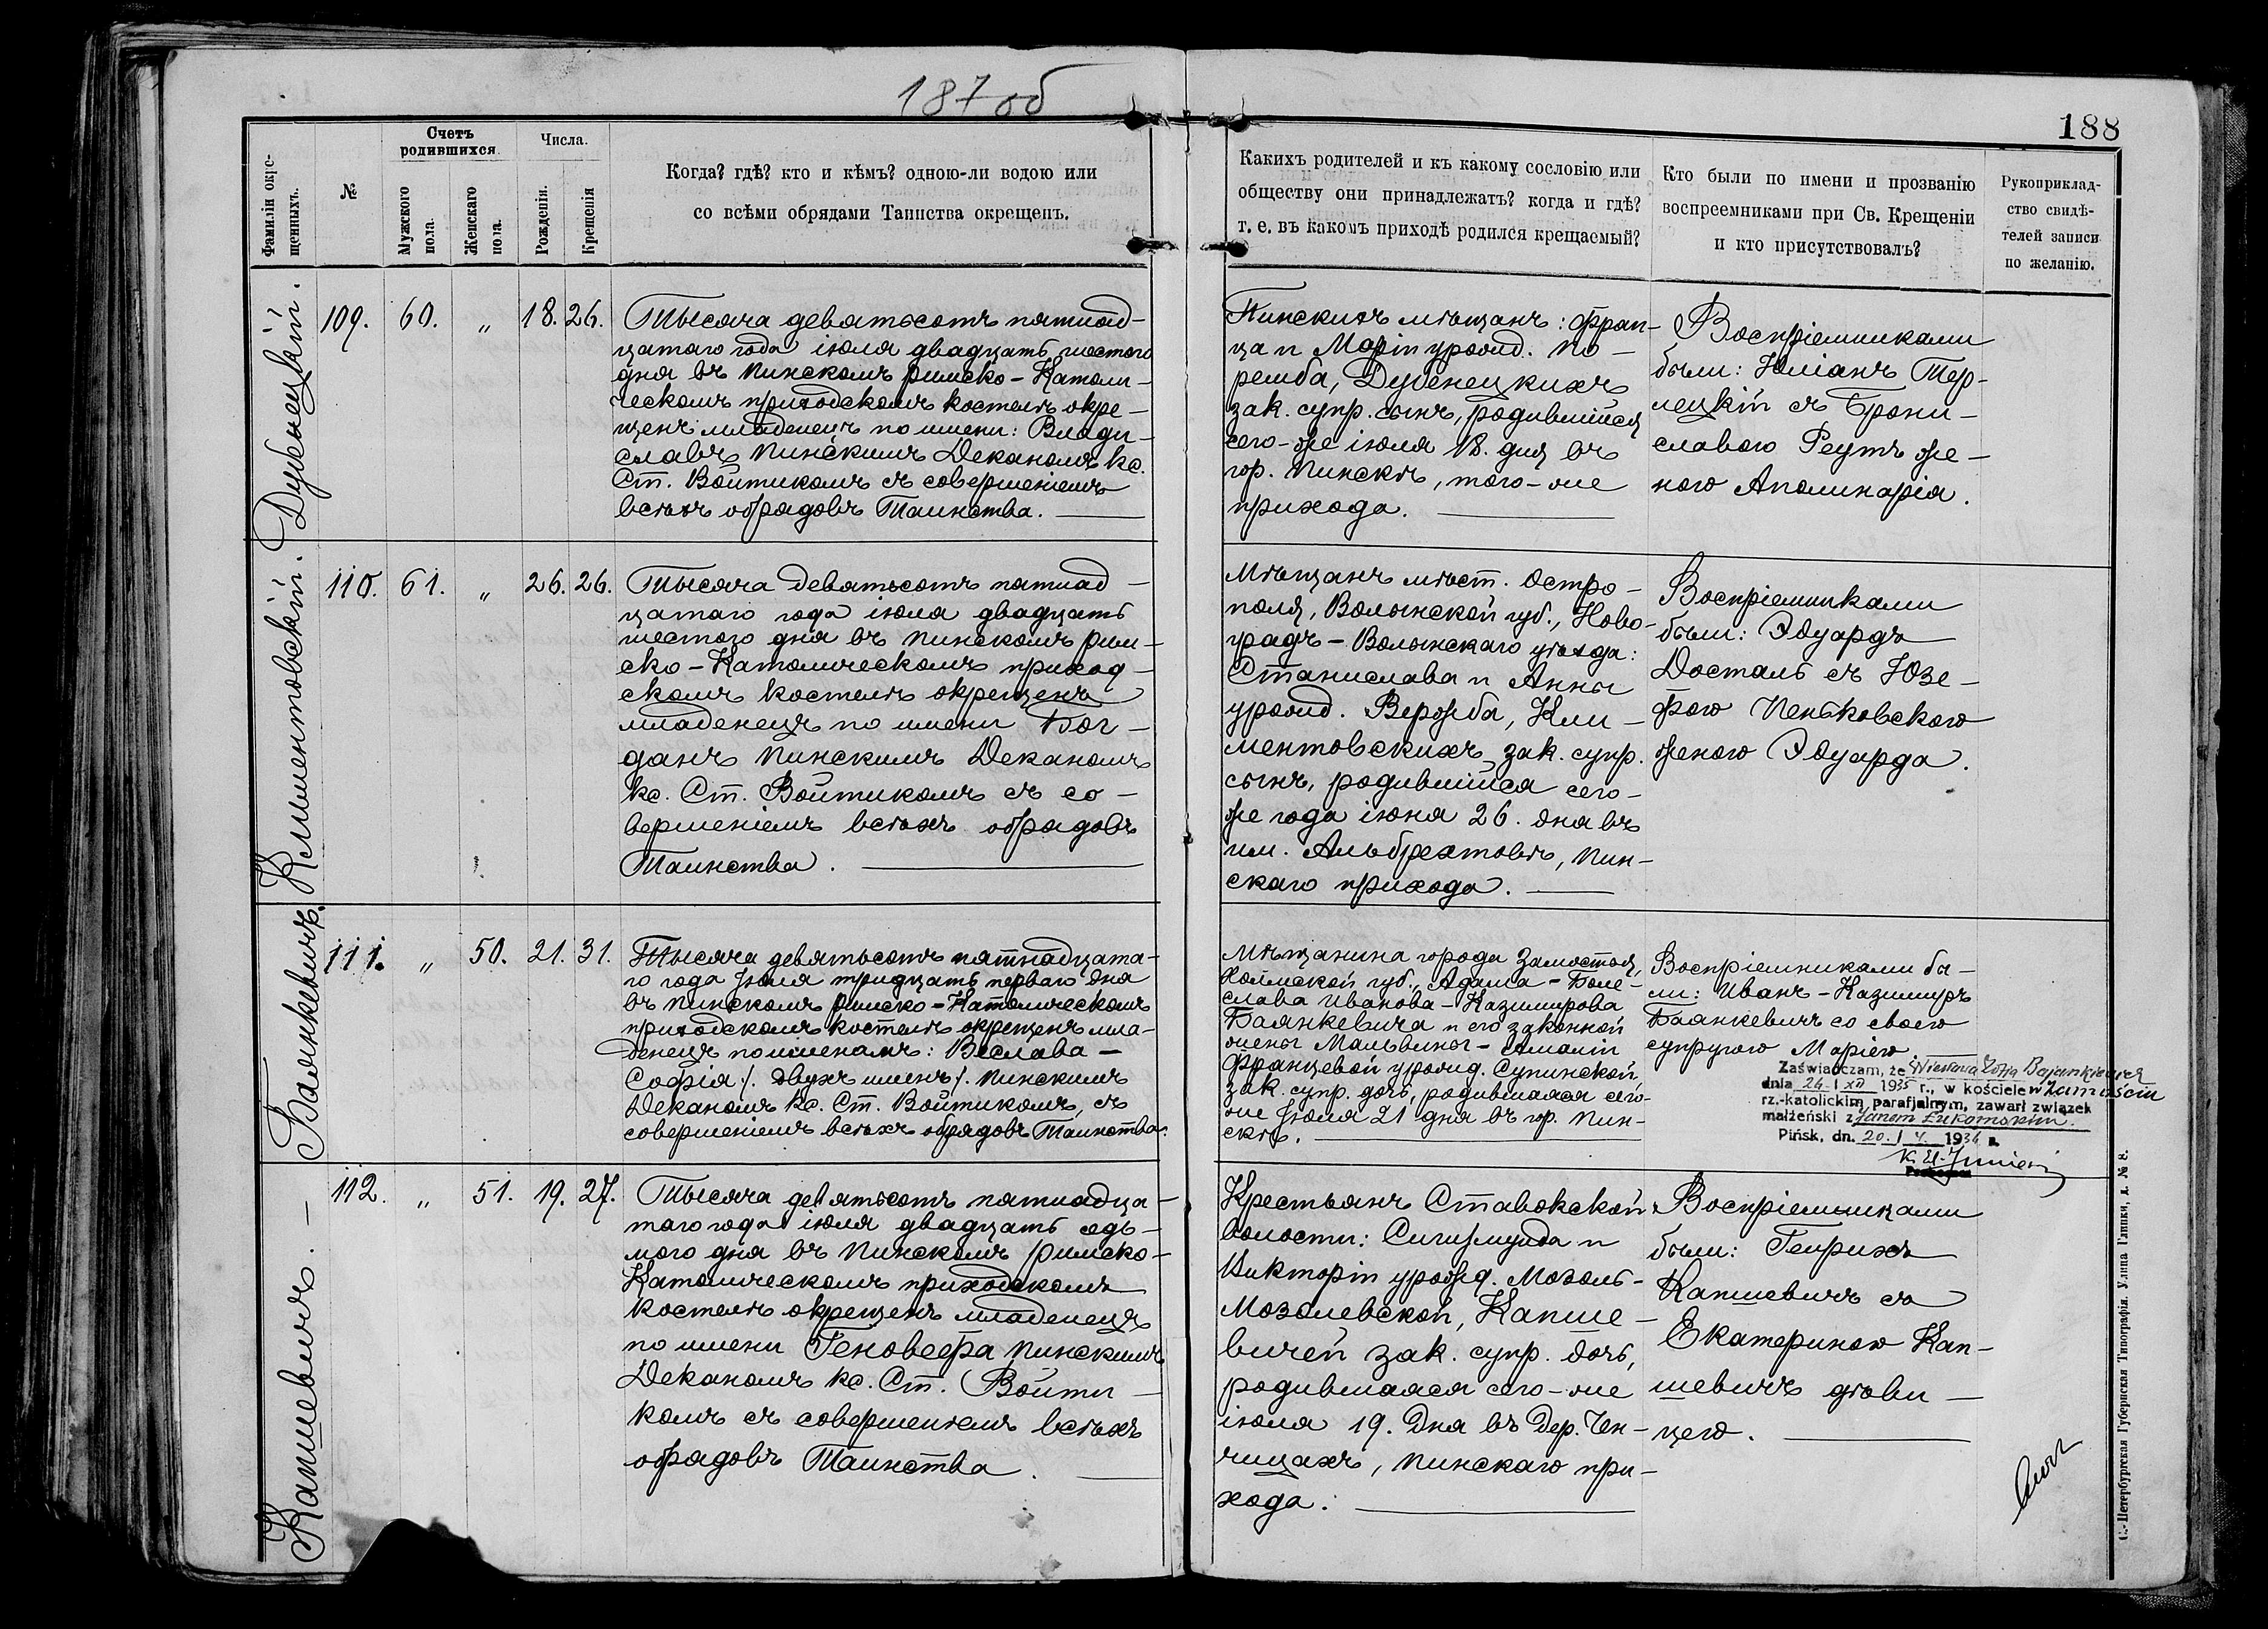 187 об
188
Фамиліи окре-
щенныхъ.
№
Счетъ
родившихся.
Мужскаго
пола.
Женскаго
пола.
Числа.
Рожденія.
Крещенія
Когда? гдѣ? кто и кѣмъ? одною-ли водою или
со всѣми обрядами Таинства окрещенъ.
Какихъ родителей и къ какому сословію или
обществу они принадлежатъ? когда и гдѣ?
т. е. въ какомъ приходѣ родился крещаемый?
Кто были по имени и прозванію
воспреемниками при Св. Крещеніи
и кто присутствовалъ?
Рукоприклад-
ство свидѣ-
телей записи
по желанію.
Дубенецкій.
109. 60. „ 18. 26.
Тысяча девятьсотъ пятнад-
цатаго года іюля двадцать шестого
дня въ Пинскомъ римско-Католи-
ческомъ приходскомъ костелѣ окре-
щенъ младенецъ по имени: Влади-
славъ Пинскимъ Деканомъ кс.
Ст. Войтикомъ съ совершеніемъ
всѣхъ обрядовъ Таинства.
Пинскихъ мѣщанъ: Фран-
ца и Маріи урожд. По-
ремба, Дубенецкихъ
зак. супр. сынъ, родившійся
сего-же іюля 18. дня въ
гор. Пинскѣ, того-же
прихода.
Воспріемниками
были: Юліанъ Тер-
лецкій съ Брони-
славою Реутъ же-
ною Аполинарія.
Климентовскій.
110. 61. „ 26. 26.
Тысяча девятьсотъ пятнад-
цатаго года іюля двадцать
шестого дня въ Пинскомъ рим-
ско-Католическомъ приход-
скомъ костелѣ окрещенъ
младенецъ по имени Бог-
данъ Пинскимъ Деканомъ
кс. Ст. Войтикомъ съ со-
вершеніемъ всѣхъ обрядовъ
Таинства.
Мѣщанъ мѣст. Остро-
поля, Волынской губ., Ново-
градъ-Волынскаго уѣзда:
Станислава и Анны
урожд. Вержба, Кли-
ментовскихъ зак. супр.
сынъ, родившійся сего-
же года іюня 26. дня въ
им. Альбрехтовѣ, Пин-
скаго прихода.
Воспріемниками
были: Эдуардъ
Досталь съ Юзе-
фою Пеньковскою
женою Эдуарда.
Баянкевичъ.
111. „ 50. 21. 31.
Тысяча девятьсотъ пятнадцата-
го года Іюля тридцать перваго дня
въ Пинскомъ римско-Католическомъ
приходскомъ костелѣ окрещенъ мла-
денецъ по именамъ: Веслава-
Софія /. двухъ именъ /. Пинскимъ
Деканомъ кс. Ст. Войтикомъ, съ
совершеніемъ всѣхъ обрядовъ Таинства.
Мѣщанина города Замостья,
Холмской губ., Адама-Боле-
слава Иванова-Казимирова
Баянкевича и его законной
жены Мальвины-Амаліи
Францевой урожд. Супинской,
зак. супр. дочь, родившаяся сего-
же Іюля 21 дня въ гор. Пин-
скѣ.
Воспріемниками бы-
ли: Иванъ-Казимиръ
Баянкевичъ со своею
супругою Маріею.
Zaświadczam, że Wiesława Zofja Bajankiewicz
dnia 26 / XII 1935 r., w kościele w Zamościu
rz.-katolickim parafjalnym, zawarł związek
małżeński z Janem Łukomskim.
Pińsk, dn. 20. / 4. 1936 r.
Капшевичъ.
112. „ 51. 19. 27.
Тысяча девятьсотъ пятнадца-
таго года іюля двадцать седь-
мого дня въ Пинскомъ римско-
Католическомъ приходскомъ
костелѣ окрещенъ младенецъ
по имени Геновефа Пинскимъ
Деканомъ кс. Ст. Войти-
комъ съ совершеніемъ всѣхъ
обрядовъ Таинства.
Крестьянъ Ставокской
волости: Сигизмунда и
Викторіи урожд. Мозоль-
Мозолевской, Капше-
вичей зак. супр. дочь,
родившаяся сего-же
іюля 19. Дня въ дер. Чен-
чицахъ, Пинскаго при-
хода.
Воспріемницами
были: Генрихъ
Капшевичъ съ
Екатериною Кап-
шевичъ дѣви-
цею.
С.-Петербургская Губернская Типографія. Улица Глинки, д. № 8.